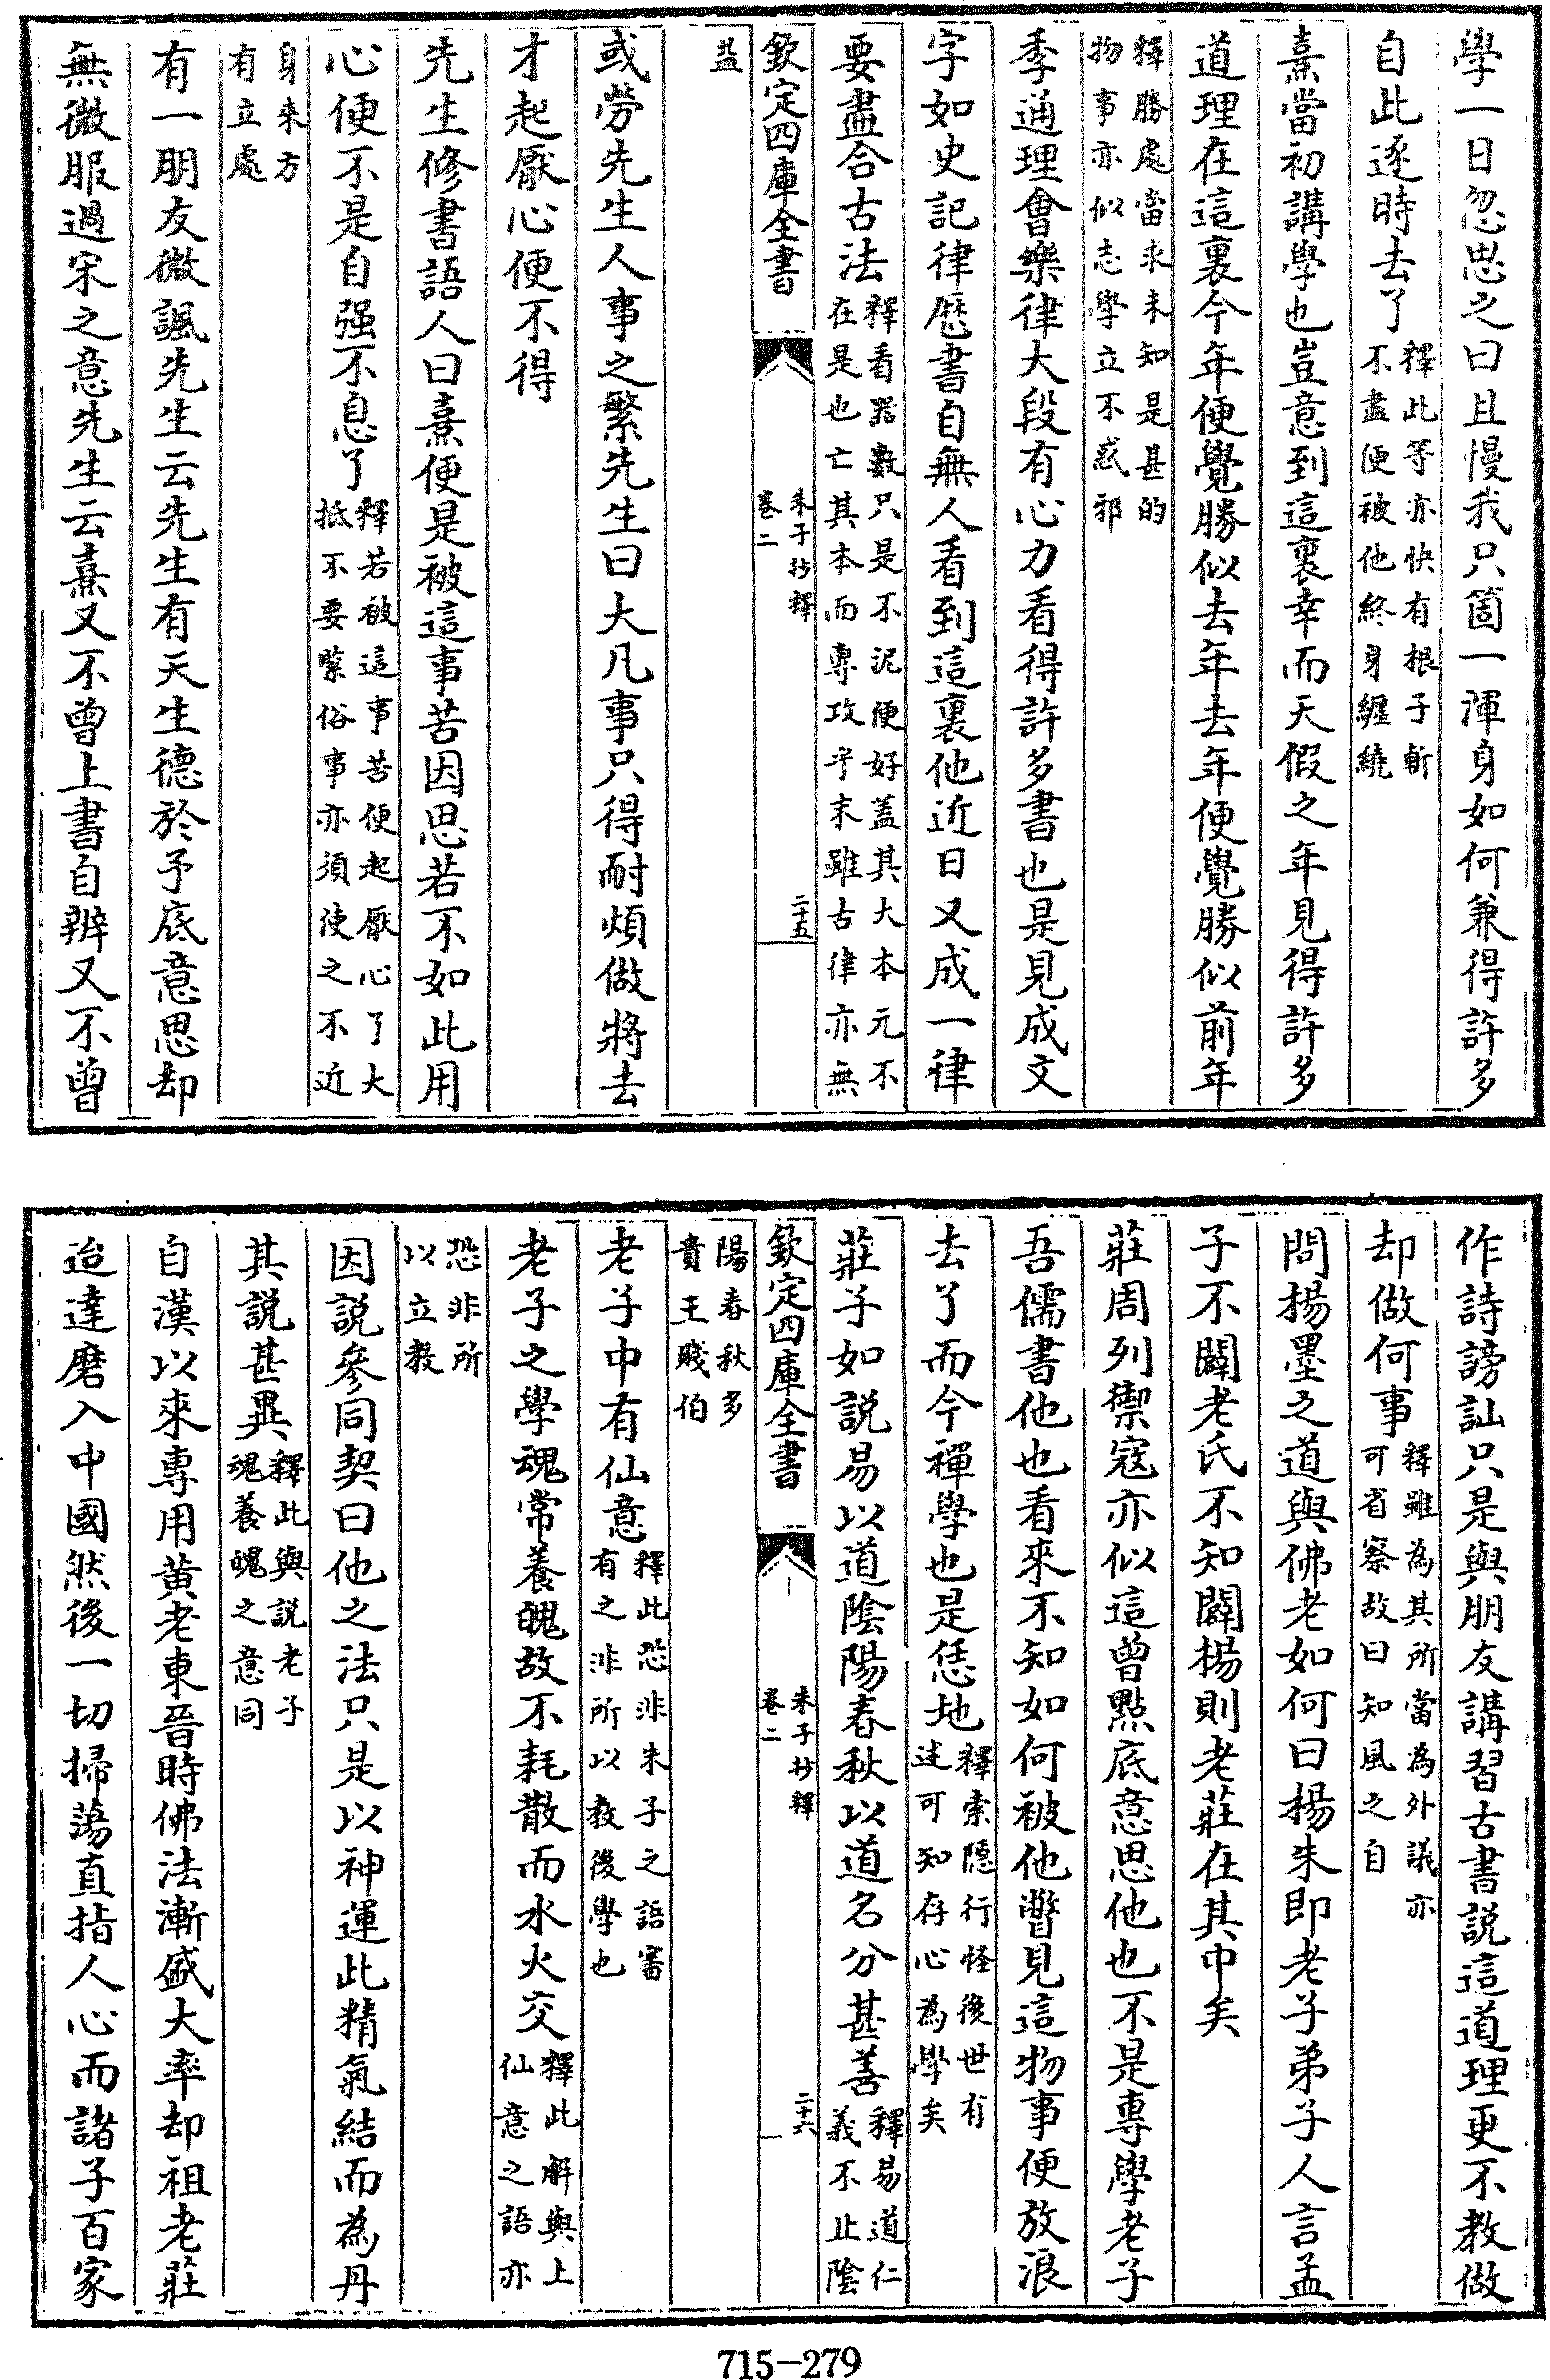 學一日忽思之曰且慢我只箇一渾身如何兼得許多
自此逐時去了釋此等亦快有根子斬
不盡便被他終身纏繞
熹當初講學也豈意到這裏幸而天假之年見得許多
道理在這裏今年便覺勝似去年去年便覺勝似前年
釋勝處當求未知是甚的
物事亦似志學立不惑邪
季通理會樂律大段有心力看得許多書也是見成文
字如史記律歴書自無人看到這裏他近日又成一律
要盡合古法釋看器數只是不泥便好盖其大本元不
在是也亡其本而專攻乎末雖古律亦無
欽定四庫全書
朱子抄釋
卷二
二十五
益
或勞先生人事之繁先生曰大凡事只得耐煩做將去
才起厭心便不得
先生修書語人曰熹便是被這事苦因思若不如此用
心便不是自强不息了釋若被這事苦便起厭心了大
抵不要緊俗事亦須使之不近
身來方
有立處
有一朋友微諷先生云先生有天生德於予底意思却
無微服過宋之意先生云熹又不曾上書自辨又不曾
作詩謗訕只是與朋友講習古書說這道理更不教做
却做何事釋雖為其所當為外議亦
可省察故曰知風之自
問揚墨之道與佛老如何曰揚朱即老子弟子人言孟
子不闢老氏不知闢楊則老莊在其中矣
莊周列禦寇亦似這曾點底意思他也不是專學老子
吾儒書他也看來不知如何被他瞥見這物事便放浪
去了而今禪學也是恁地釋索隱行怪後世有
述可知存心為學矣
莊子如說易以道陰陽春秋以道名分甚善釋易道仁
義不止陰
欽定四庫全書
朱子抄釋
卷二
二十六
陽春秋多
貴王賤伯
老子中有仙意釋此恐非朱子之語審
有之非所以教後學也
老子之學魂常養魄故不耗散而水火交釋此解與上
仙意之語亦
恐非所
以立教
因説參同契曰他之法只是以神運此精氣結而為丹
其説甚異釋此與説老子
魂養魄之意同
自漢以來專用黄老東晉時佛法漸盛大率却祖老莊
迨達磨入中國然後一切掃蕩直指人心而諸子百家
715-279